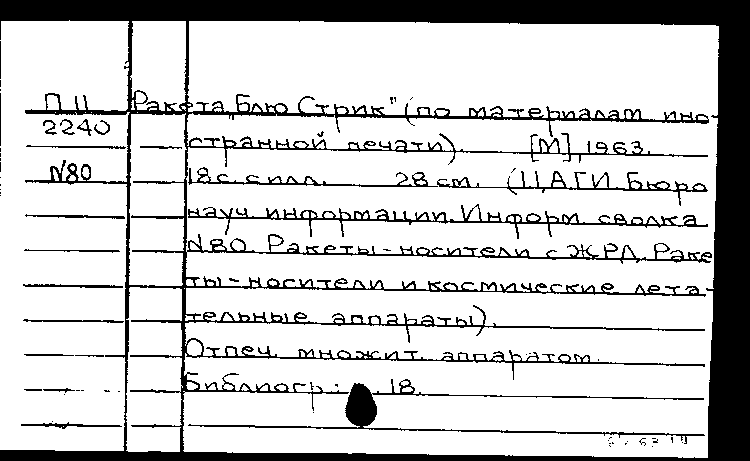 П II Ракета „Блю Стрик" (по материалам ино-
2240 странной печати). [М], 1963.
N80 18 с. с илл. 28 см. (ЦАГИ. Бюро
науч. информации. Информ. сводка
N80. Ракеты-носители с ЖРД. Раке
ты-носители и космические лета-
тельные аппараты).
Отпеч. множит. аппаратом.
Библиогр: 18.